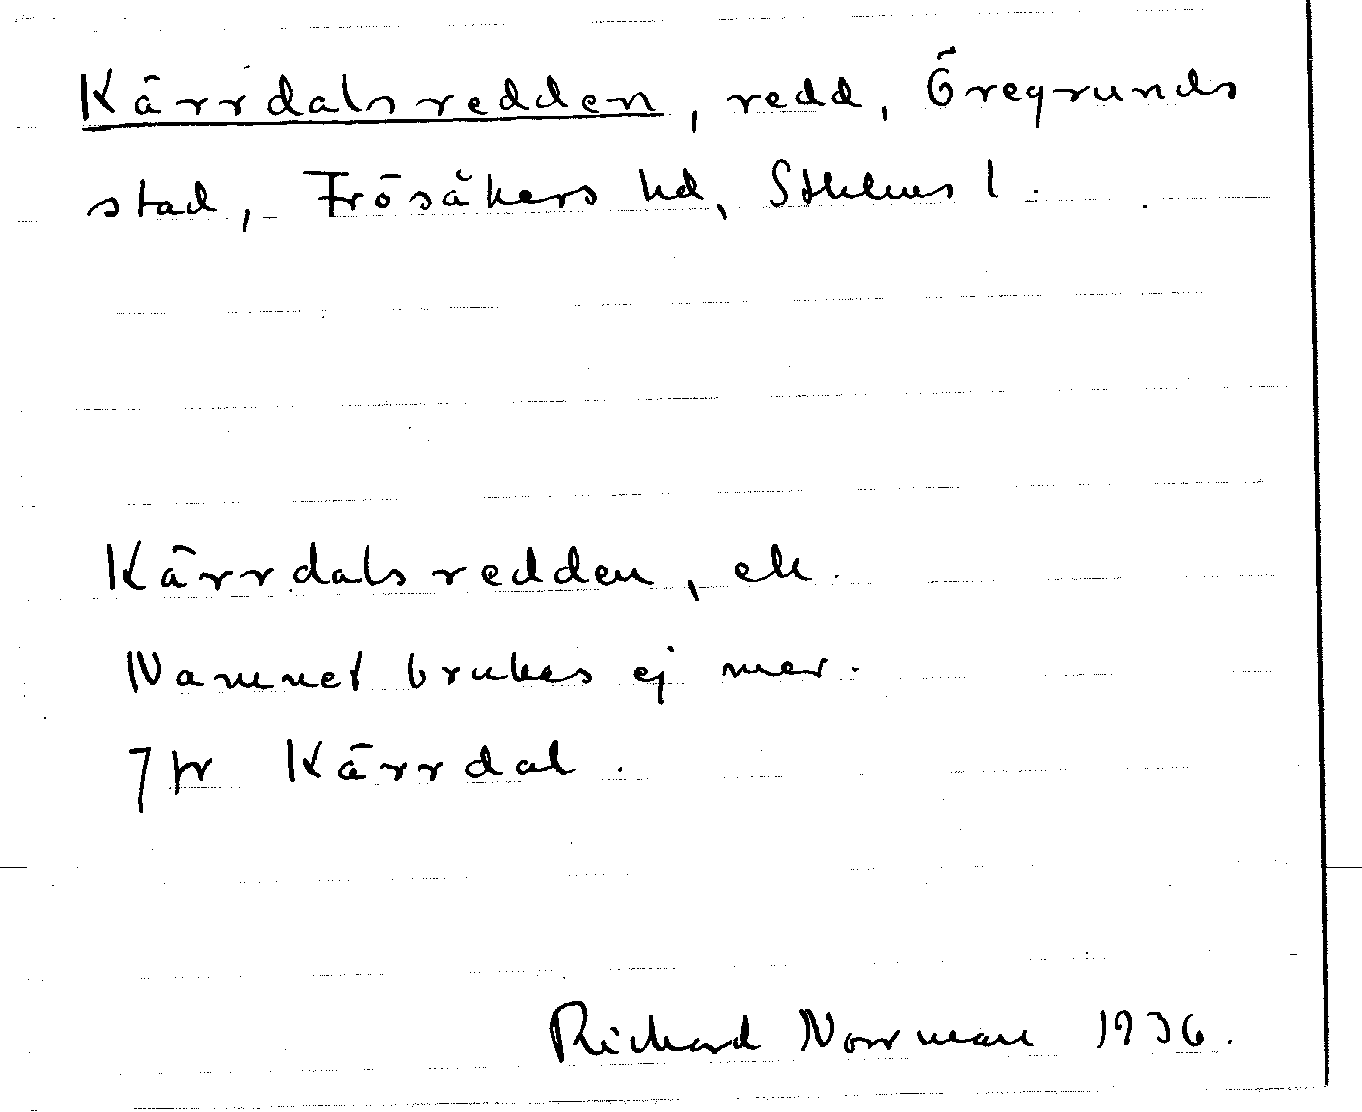 Kärrdalsredden, redd, Öregrunds
stad, Frösåkers hd, Sthlms l.
Kärrdalsredden, ek.
Namnet brukas ej mer.
Jfr Kärrdal.
Richard Norrman 1936.